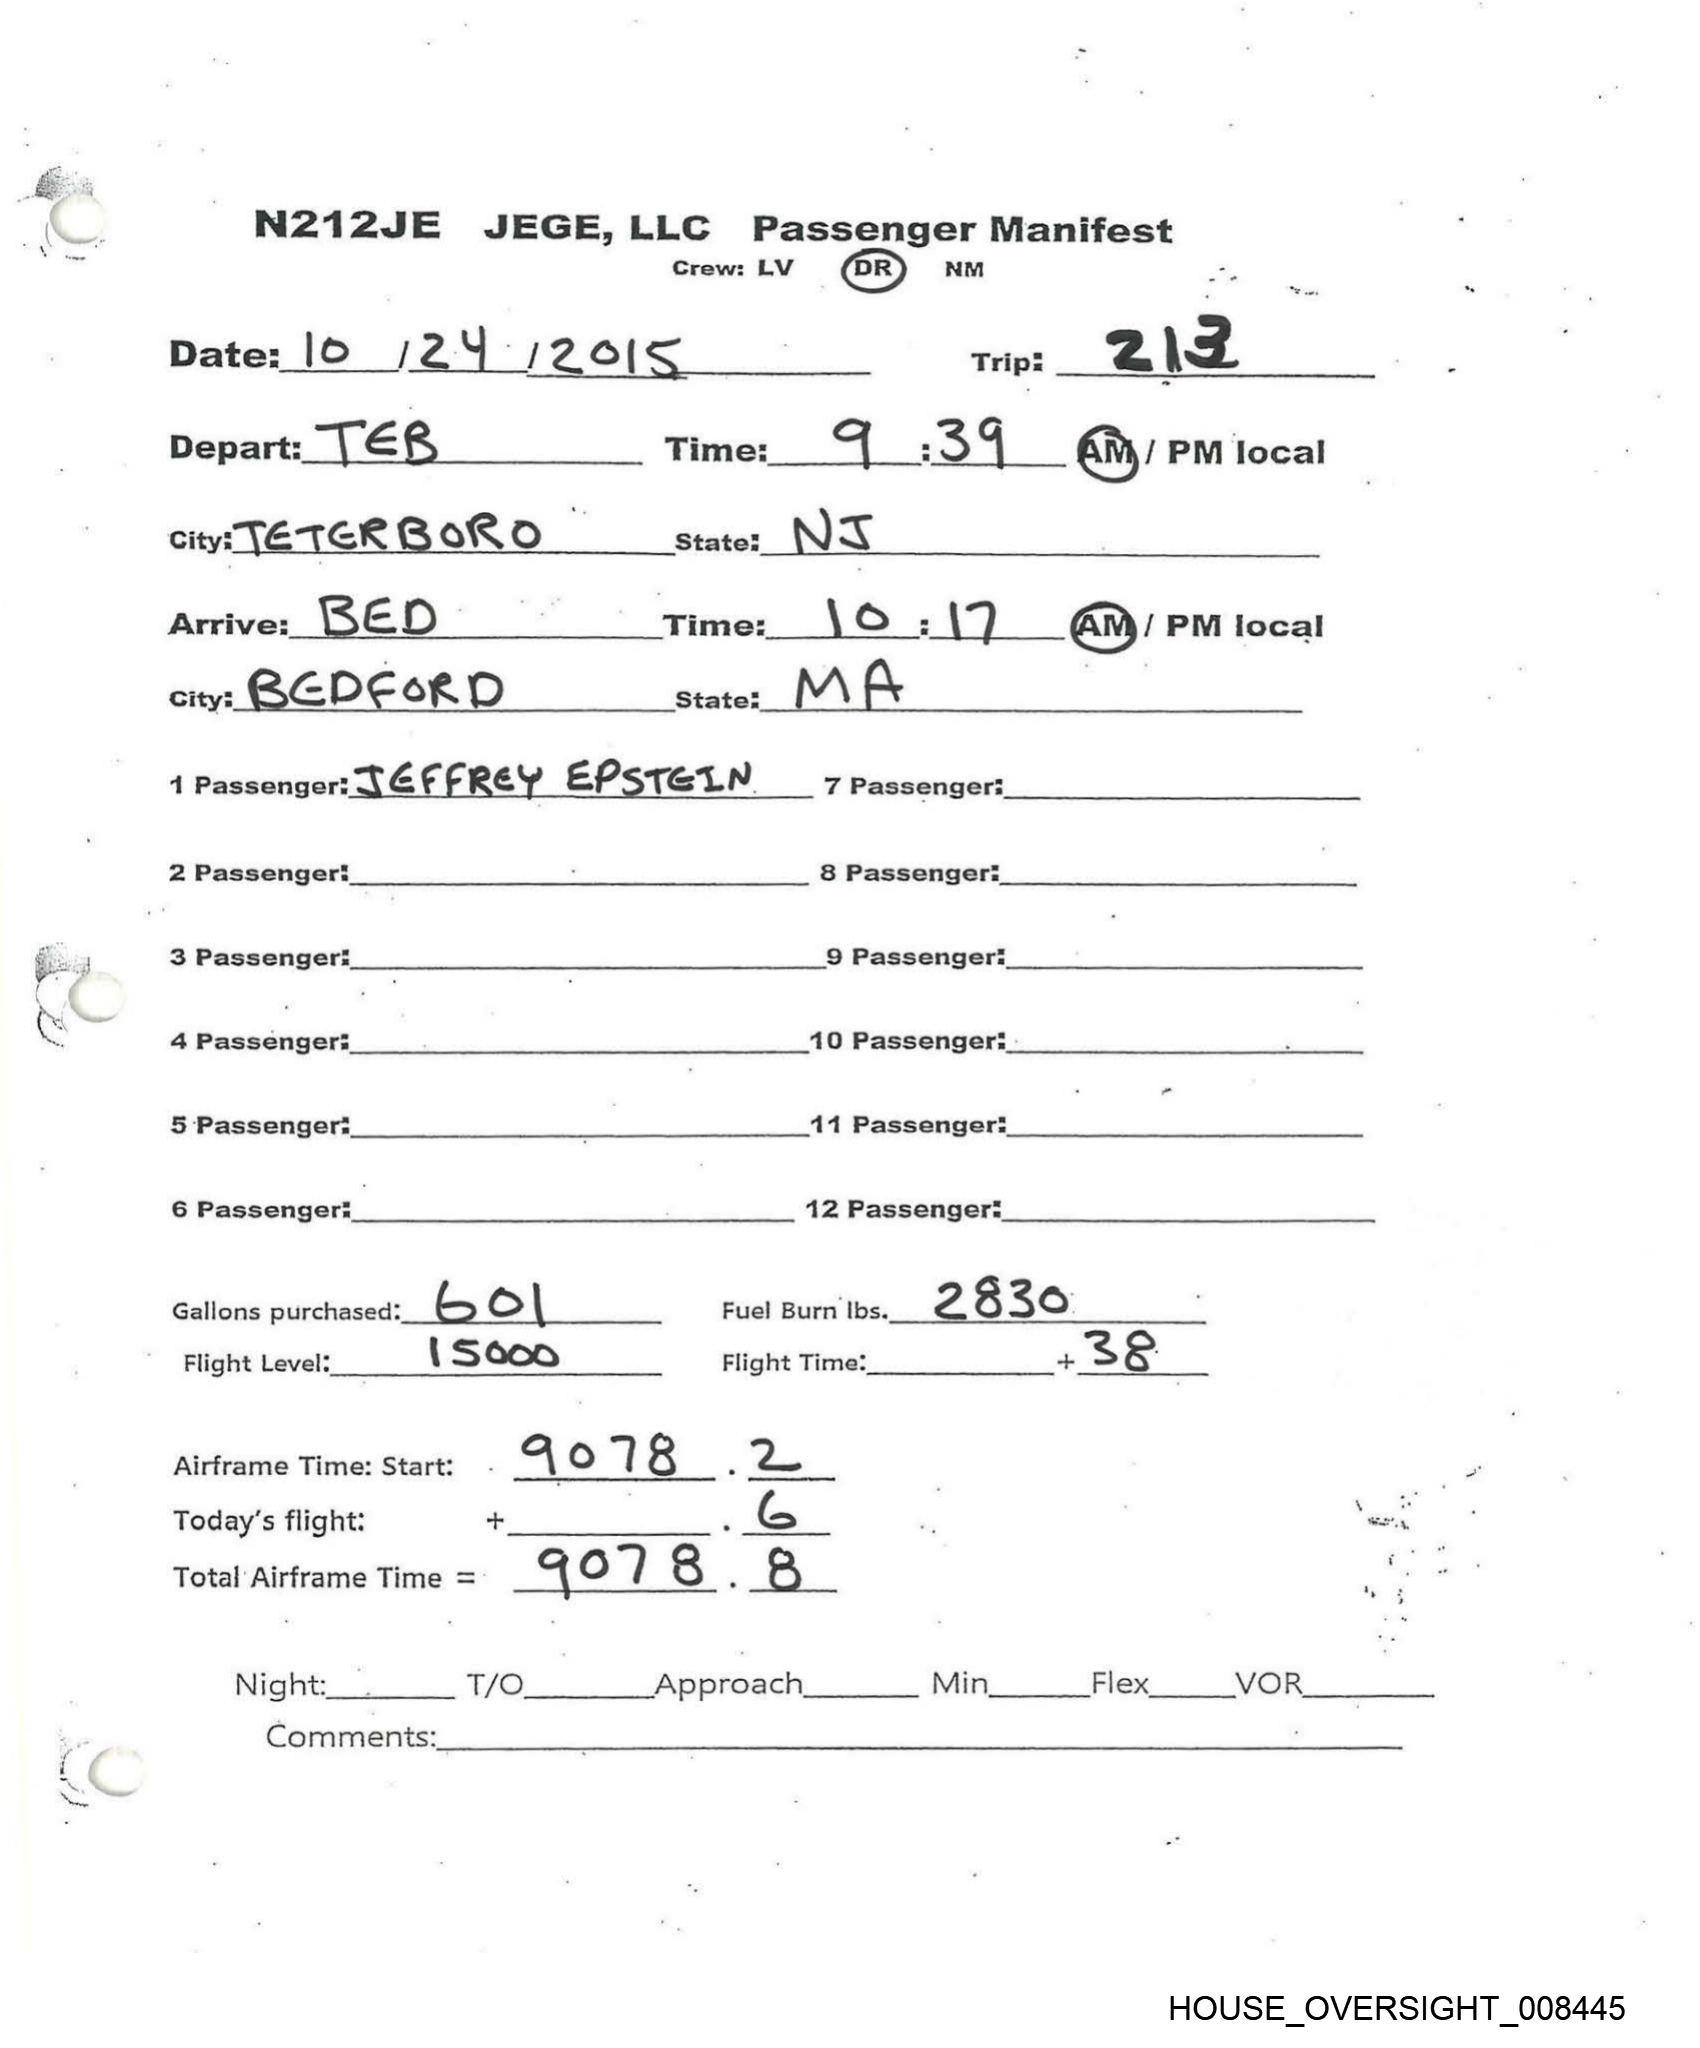 N212JE JEGE, LLC Passenger Manifest
Crew: LV DR NM
Date: 10 / 24 / 2015 Trip: 213
Depart: TEB Time: 9 : 39 AM / PM local
City: TETERBORO State: NJ
Arrive: BED Time: 10 : 17 AM / PM local
City: BEDFORD State: MA
1 Passenger: JEFFREY EPSTEIN 7 Passenger:
2 Passenger: 8 Passenger:
3 Passenger: 9 Passenger:
4 Passenger: 10 Passenger:
5 Passenger: 11 Passenger:
6 Passenger: 12 Passenger:
Gallons purchased: 601 Fuel Burn lbs. 2830
Flight Level: 15000 Flight Time: + 38
Airframe Time: Start: 9078 . 2
Today's flight: + . 6
Total Airframe Time = 9078 . 8
Night: T/O Approach Min Flex VOR
Comments:
HOUSE_OVERSIGHT_008445